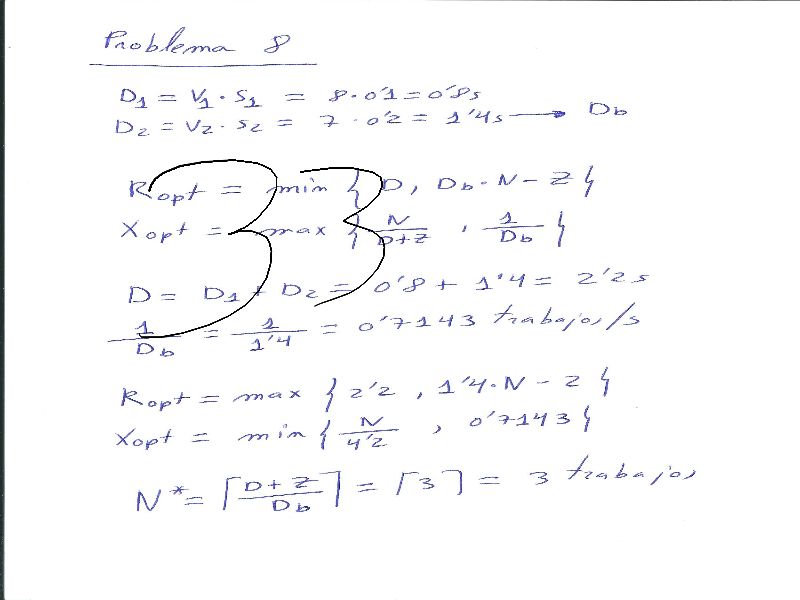 Problema 8
D1 = V1 · S1 = 8 · 0'1 = 0'8s
D2 = V2 · S2 = 7 · 0'2 = 1'4s → Db
Ropt = min { D, Db · N - Z }
Xopt = max { N/D+Z , 1/Db }
33
D = D1 + D2 = 0'8 + 1'4 = 2'2s
1/Db = 1/1'4 = 0'7143 trabajos/s
Ropt = max { 2'2 , 1'4 · N - 2 }
Xopt = min { N/4'2 , 0'7143 }
N* = ⌈D+Z/Db⌉ = ⌈3⌉ = 3 trabajos